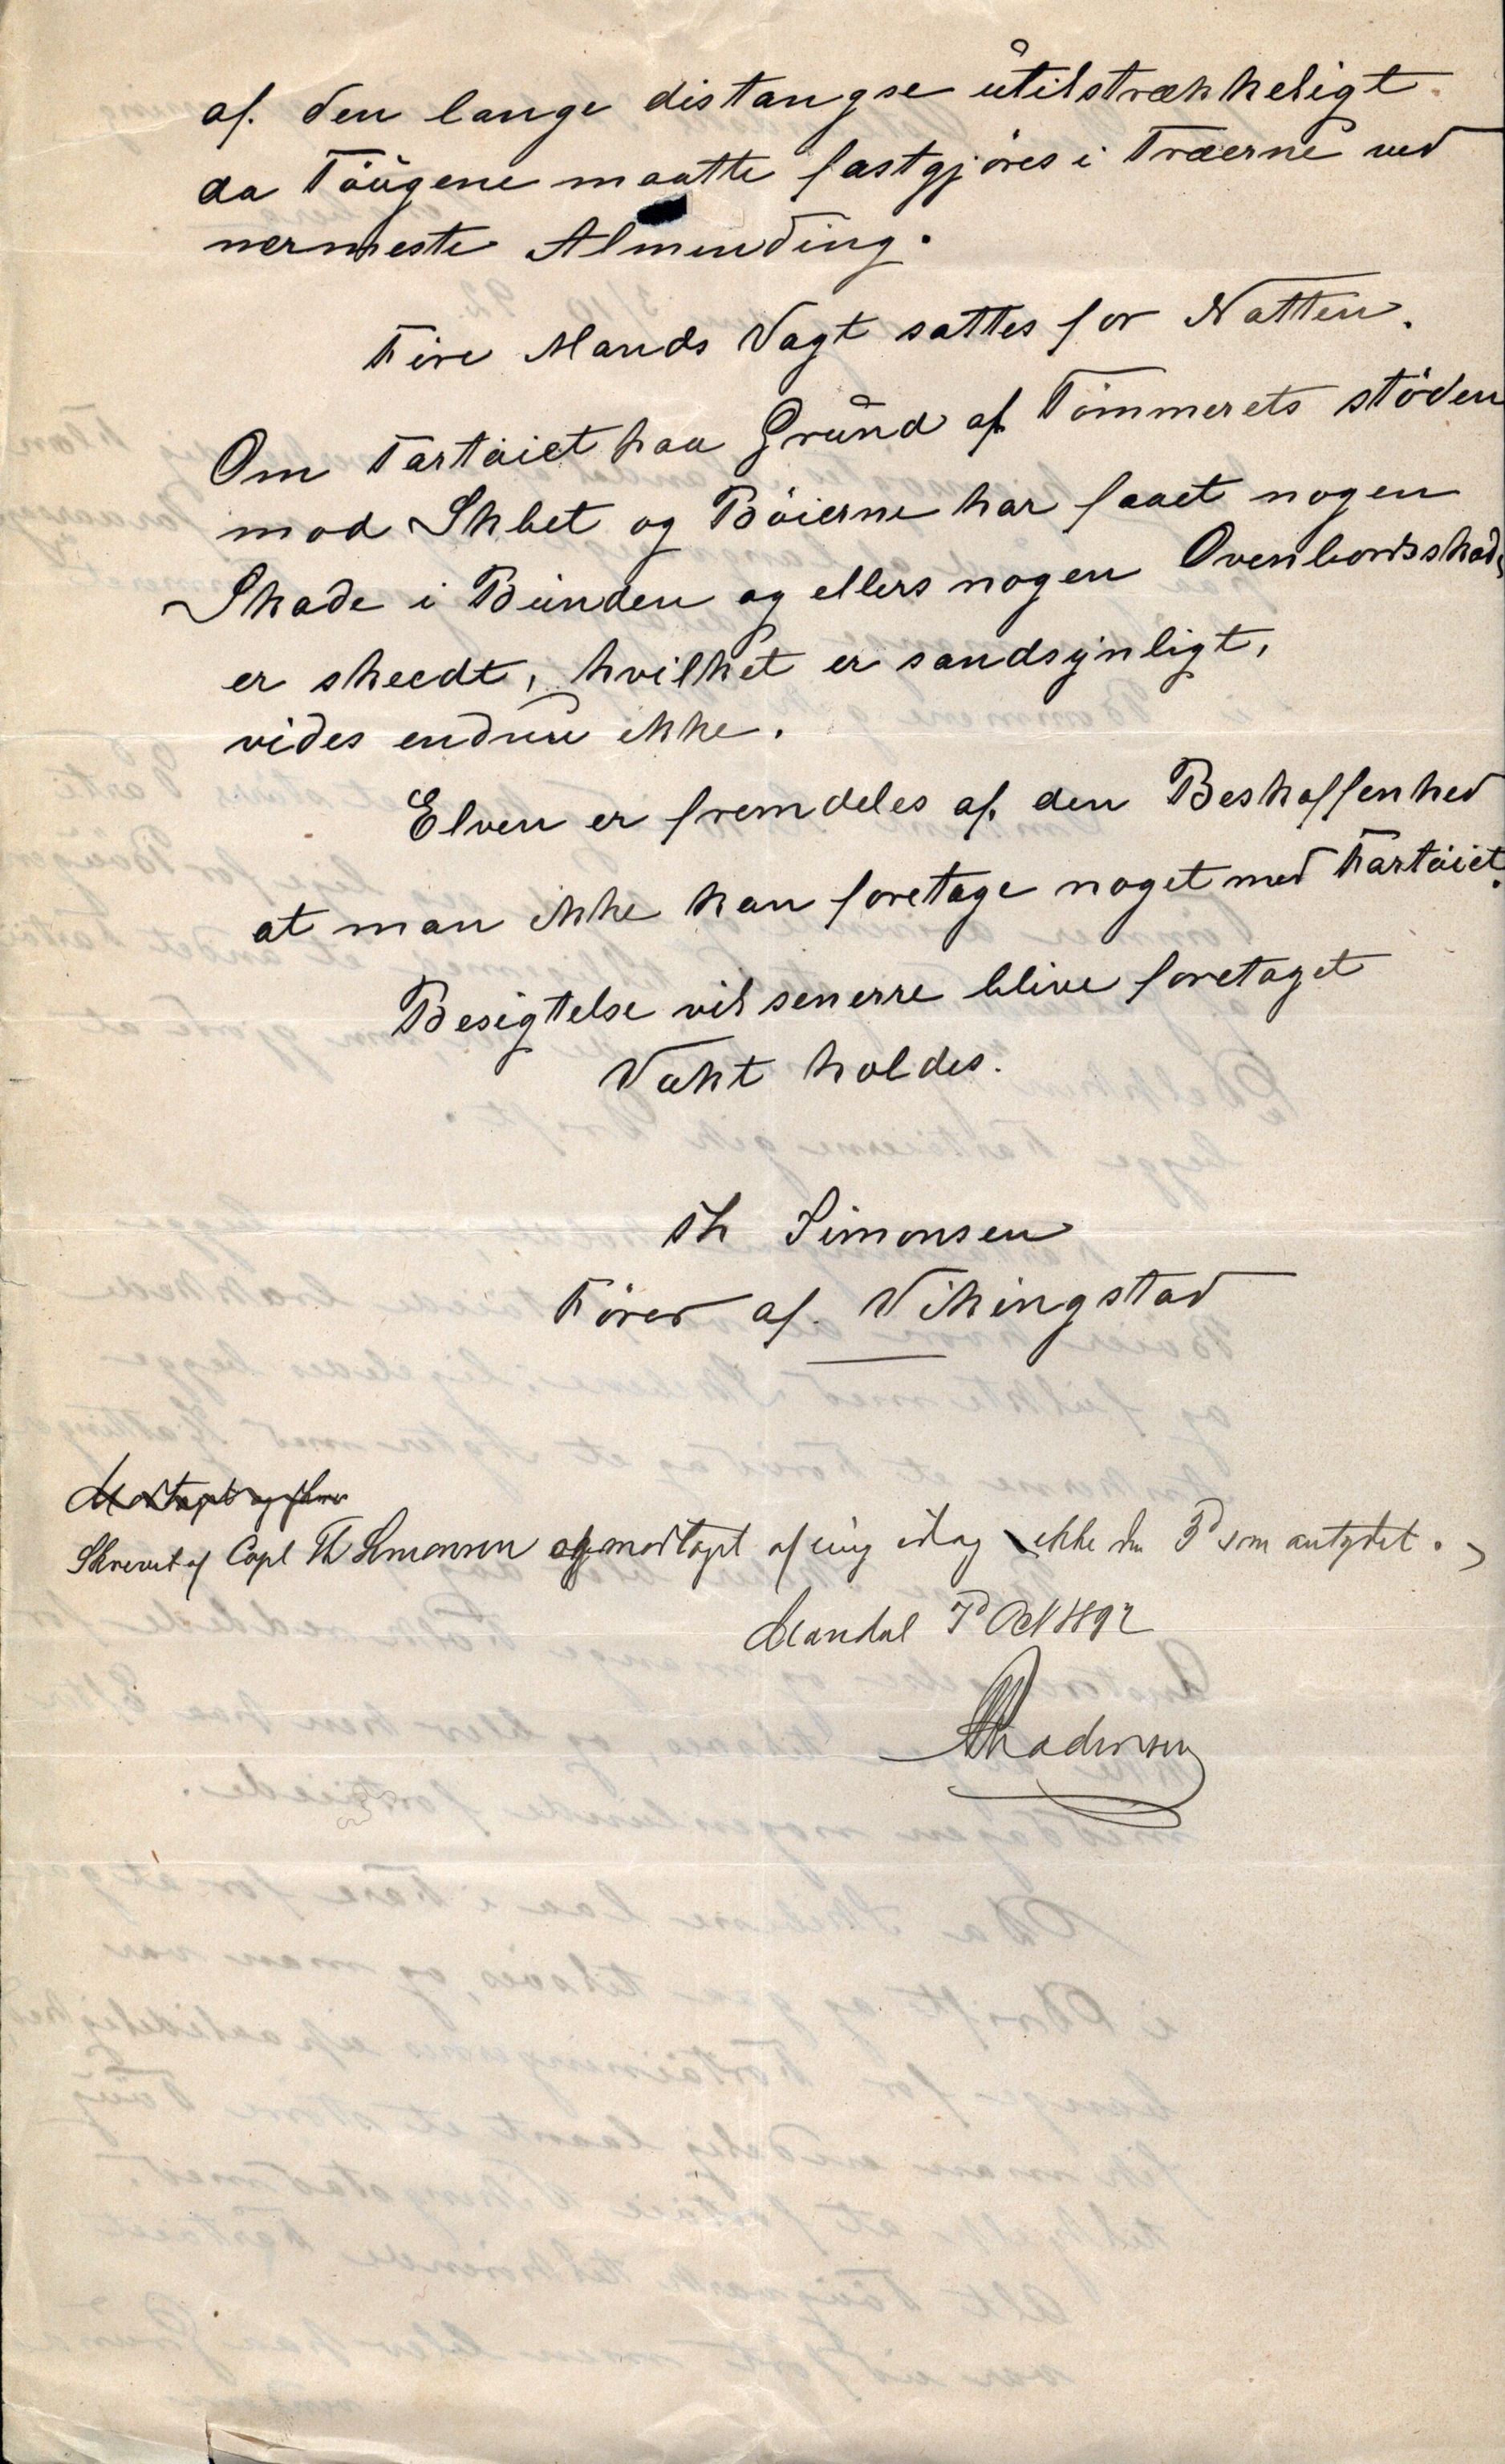 af. den lange distangse ůtilstrækkeligt.
da Töůgene maatte fastgjöres i Træerne ved
nærmeste Almending.
Fire Mands Vagt sattes for Natten.
Om Fartöiet paa Grůnd af Tömmerets stöden
mod Skbet og Böierne har faaet nogen
Skade i Bunden og ellers nogen Ovenbordsskade
er skeedt, hvilket er sandsynligt,
vides endnu ikke.
Elven er fremdeles af. den Beskaffenhed
at man ikke kan foretage noget med Fartöiet.
Besigtelse vil senerre blive foretaget
Vakt holdes.
Th Simonsen
Förer af. Vikingstad
Modtaget og
Skrevet af Capt Th Simonsen og modtaget af mig idag ikke den 3d som antydet.
Mandal 7d Oct 1892